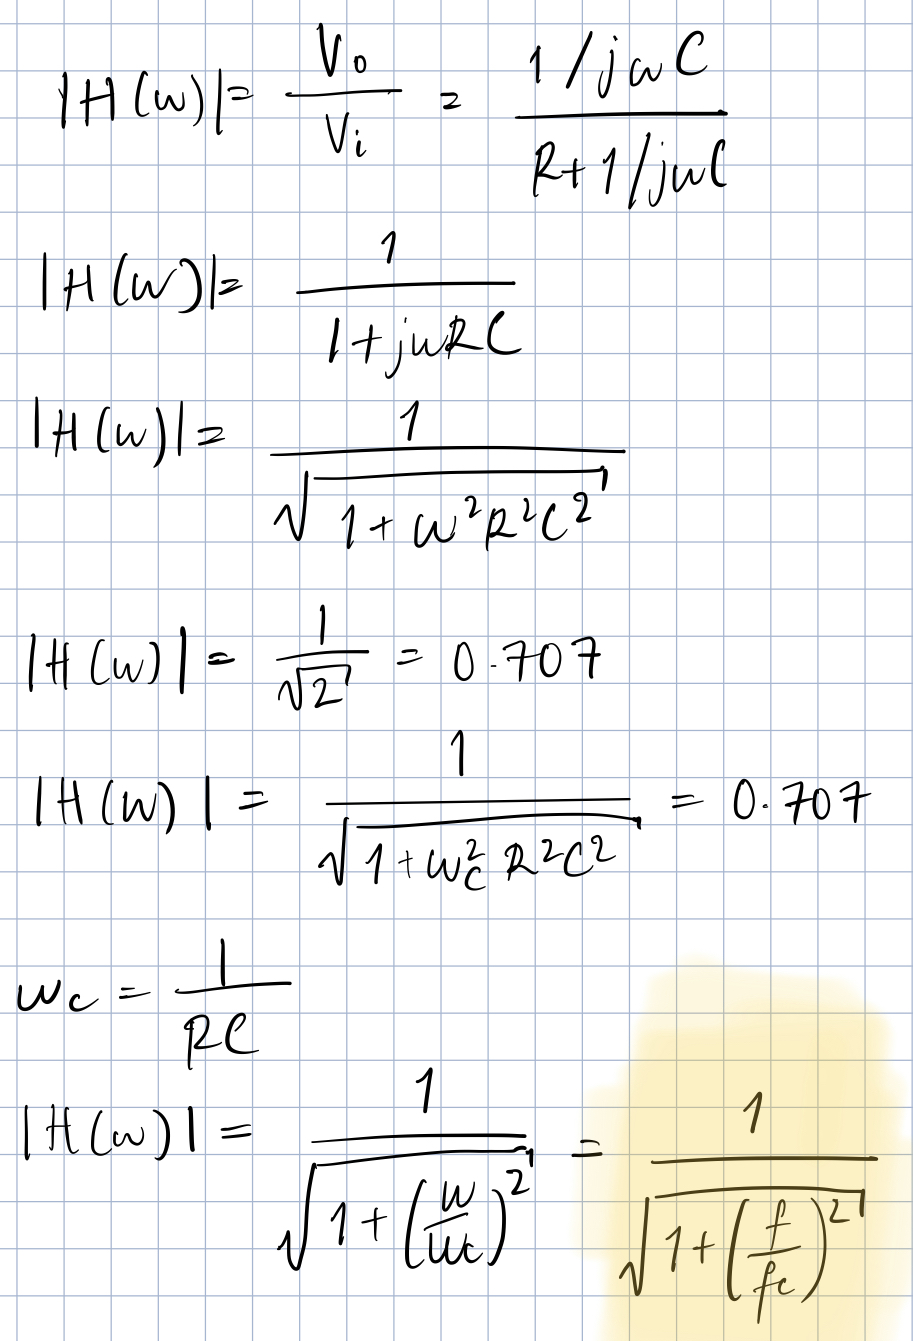 |H(w)| = Vo/Vi = (1/jwC)/(R+1/jwC)
|H(w)| = 1/(1+jwRC)
|H(w)| = 1/√(1+w²R²C²)
|H(w)| = 1/√2 = 0.707
|H(w)| = 1/√(1+wc²R²C²) = 0.707
wc = 1/RC
|H(w)| = 1/√(1+(w/wc)²) = 1/√(1+(f/fc)²)